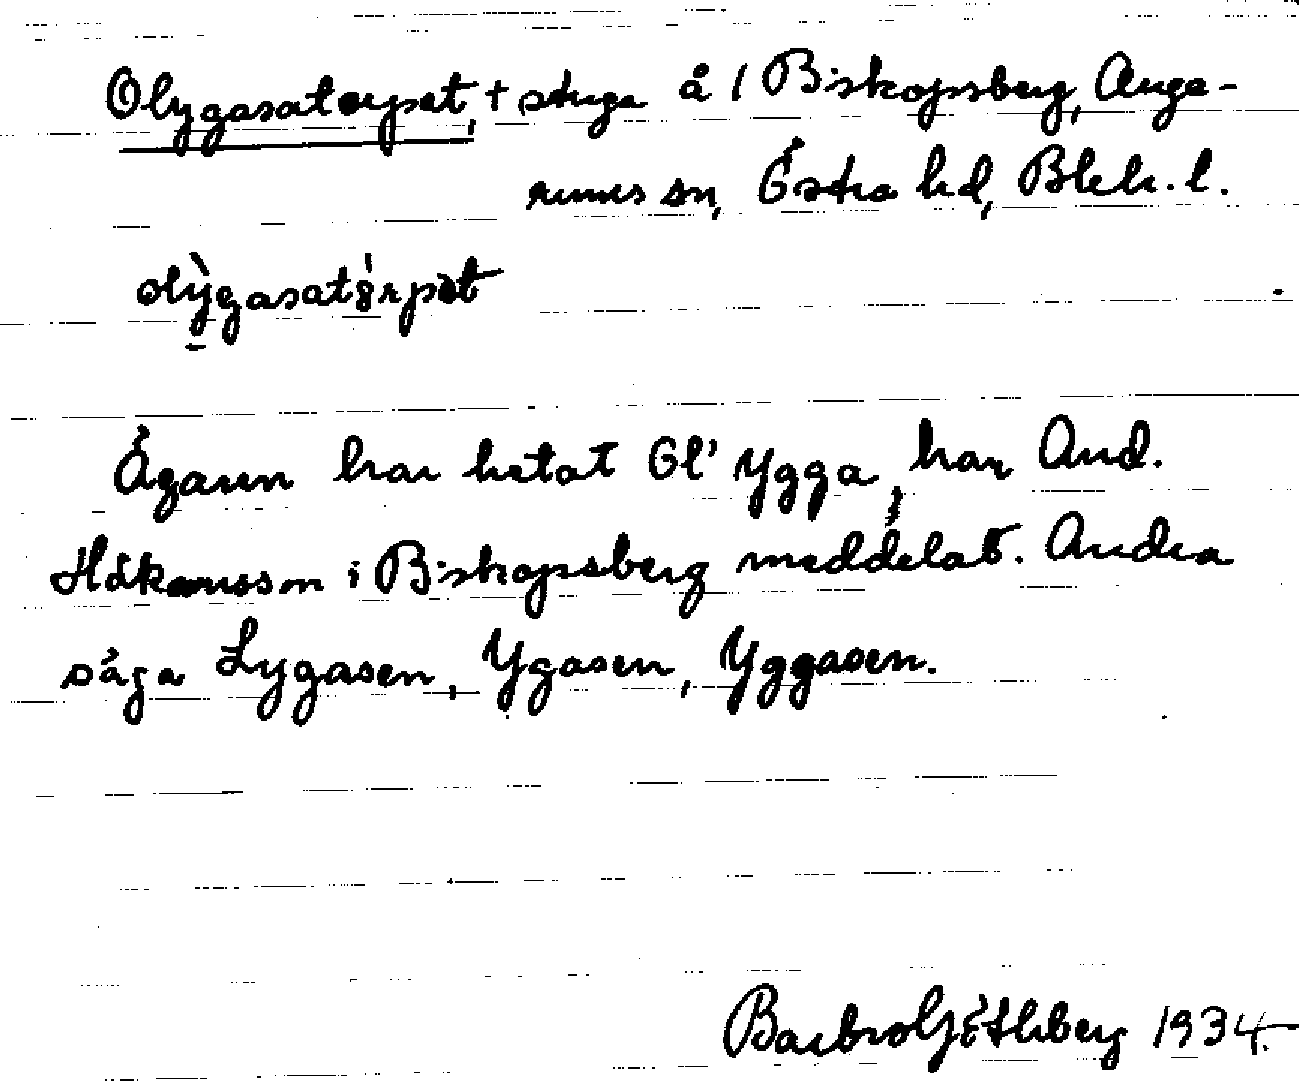 Olygasatorpet, † stuga å 1 Biskopsberg, Ånga-
rums sn, Östra hd, Blek. l.
olỳgasatórpət
Ägaren har hetat Ol' Ygga, har And.
Håkansson i Biskopsberg meddelat. Andra
säga Lygasen, Ygasen, Yggasen.
Barbro Göthberg 1934.